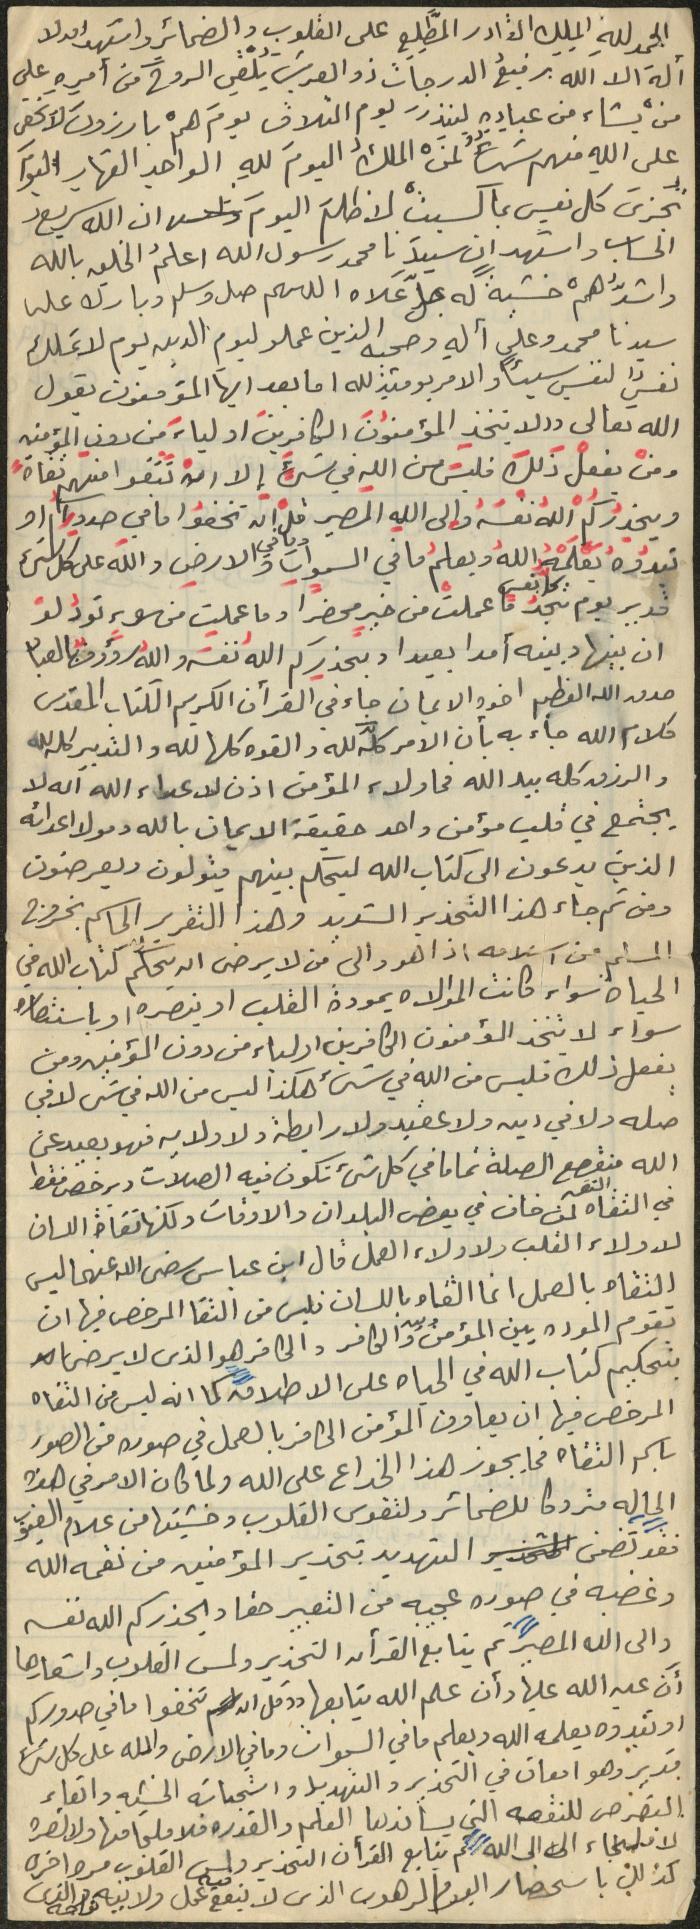 الحمد لله الملك القادر المطَّلِعِ على القلوب والضمائر واشهد ان لا
أله الا الله رفيعُ الدرجات ذو العرش يُلْقي الروحَ من أمرِهِ على
منْ يشاء من عباده لينذر يوم التلاق يومَ همْ بارزون لا يخفى
على الله منهم شئٌ لمنْ الملكُ اليومَ للهِ الواحدِ القهارِ اليومَ
تُجزىَ كل نفسٍ بما كسبتْ لا ظلمَ اليومَ ان الله سريع
الحساب واشهد ان سيدنا محمد رسول الله اعلمُ الخلق بالله
واشدُّهمْ خشيةً له جلَّ عَلاه اللهم صل وسلم وبارك على
سيدنا محمد وعلى أله وصحبه الذين عملو ليوم الدين يوم لا تملك
نفسٌ لنفسٍ شيئاً والامر يومئذٍ لله اما بعد ايها المؤمنون يقول
الله تعالى ((لا يتخذِ المؤمنوُنَ الكافرينَ اولياءَ من دون المؤمنين
ومنْ يفعلْ ذلكَ فليسَ من اللهِ في شئٍ إلا انْ تتقوا منهم تقاةً
ويحذرُكم اللهُ نفسَهُ والى اللهِ المصير قلْ ان تخفوُا ما في صدوركم او
تبدُوهُ يَعْلَمْهُ اللهُ ويعلمُ ما في السمواتِ وما في الارضِ واللهُ على كل شئٍ
قدير يوم تجدُ كل نفس ما عملتْ من خيرٍ محضراً وما عملت من سوءٍ تودُ لوْ
ان بينها وبينه أمدا بعيدا ويحذركم اللهُ نفسَه واللهُ رؤوفٌ بالعباد
صدق الله العظيم اخوة الايمان جاء في القرأن الكريم الكتاب المقدس
كلام الله جاء به بأن الامر كلَّه لله والقوه كلها لله والتدبير كله لله
والرزق كله بيد الله فما ولاء المؤمن اذن لاعداء الله انه لا
يجتمع في قلب مؤمن واحد حقيقة الايمان بالله وموالا اعدائه
الذين يدعون الى كتاب الله ليحكم بينهم فيتولون ويعرضون
ومن ثم جاء هذا التحذير الشديد وهذا التقرير الحاسم بخروج
المسلم من اسلامه اذا هو والى من لا يرضى ان يحكّم كتاب الله في
الحياة سواء كانت الموالاه بمودة القلب او بنصره او باستنصاره
سواء لا يتخذ المؤمنون الكافرين اولياء من دون المؤمنين ومن
يفعل ذلك فليس من الله في شئ هكذا ليس من الله في شئ لا في
صله ولا في دين ولا عقيد ولا رابطة ولا ولايه فهو بعيد عن
الله منقصع الصلة تماما في كل شئ تكون فيه الصلات ويرخص فقط
في التقاه لمن خاف في بعض البلدان والاوقات ولكنها تقاة اللسان
لا ولاء القلب ولا ولاء العمل قال ابن عباس رضى الله عنهما ليس
التقاه بالعمل انما التقاه باللسان فليس من التقا المرخص فيها ان
تقوم الموده بين المؤمن وبين الكافر والكافر هو الذى لا يرضى
بتحكيم كتاب الله في الحياه على الاطلاق كما انه ليس من التقاه
المرخص فيها ان يعاون المؤمن الكافر بالعمل في صوره من الصور
باسم التقاه فما يجوز هذا الخداع على الله ولما كان الامر في هذه
الحاله متروكا للضمائر ولتقوى القلوب وخشيتها من علام الغيوب
فقد تضمن التهديد تحذير المؤمنين من نقمه الله
وغضبه في صوره عجيبه من التعبير حقا ويحذركم الله نفسه
والى الله المصير ثم يتابع القرأن التحذير ولمس القلوب واشعارها
أن عين الله عليها وأن علم الله يتابعها ((قل ان تخفوا ما في صدوركم
او تبدوه يعلمه الله ويعلم ما في السموات وما في الارض والله على كل شئ
قدير وهو امعان في التحذير والتهديد واستجاشة الخشيه واتقاء
التعرض للنقمه التي يساندها العلم والقدره فلا ملجأ منها ولا نصره
الى الله ثم يتابع القرأن التحذير ولمس القلوب مره اخره
كذلك باستحضار اليوم المرهوب الذى لا ينفع فيه عمل ولا نيه والذى